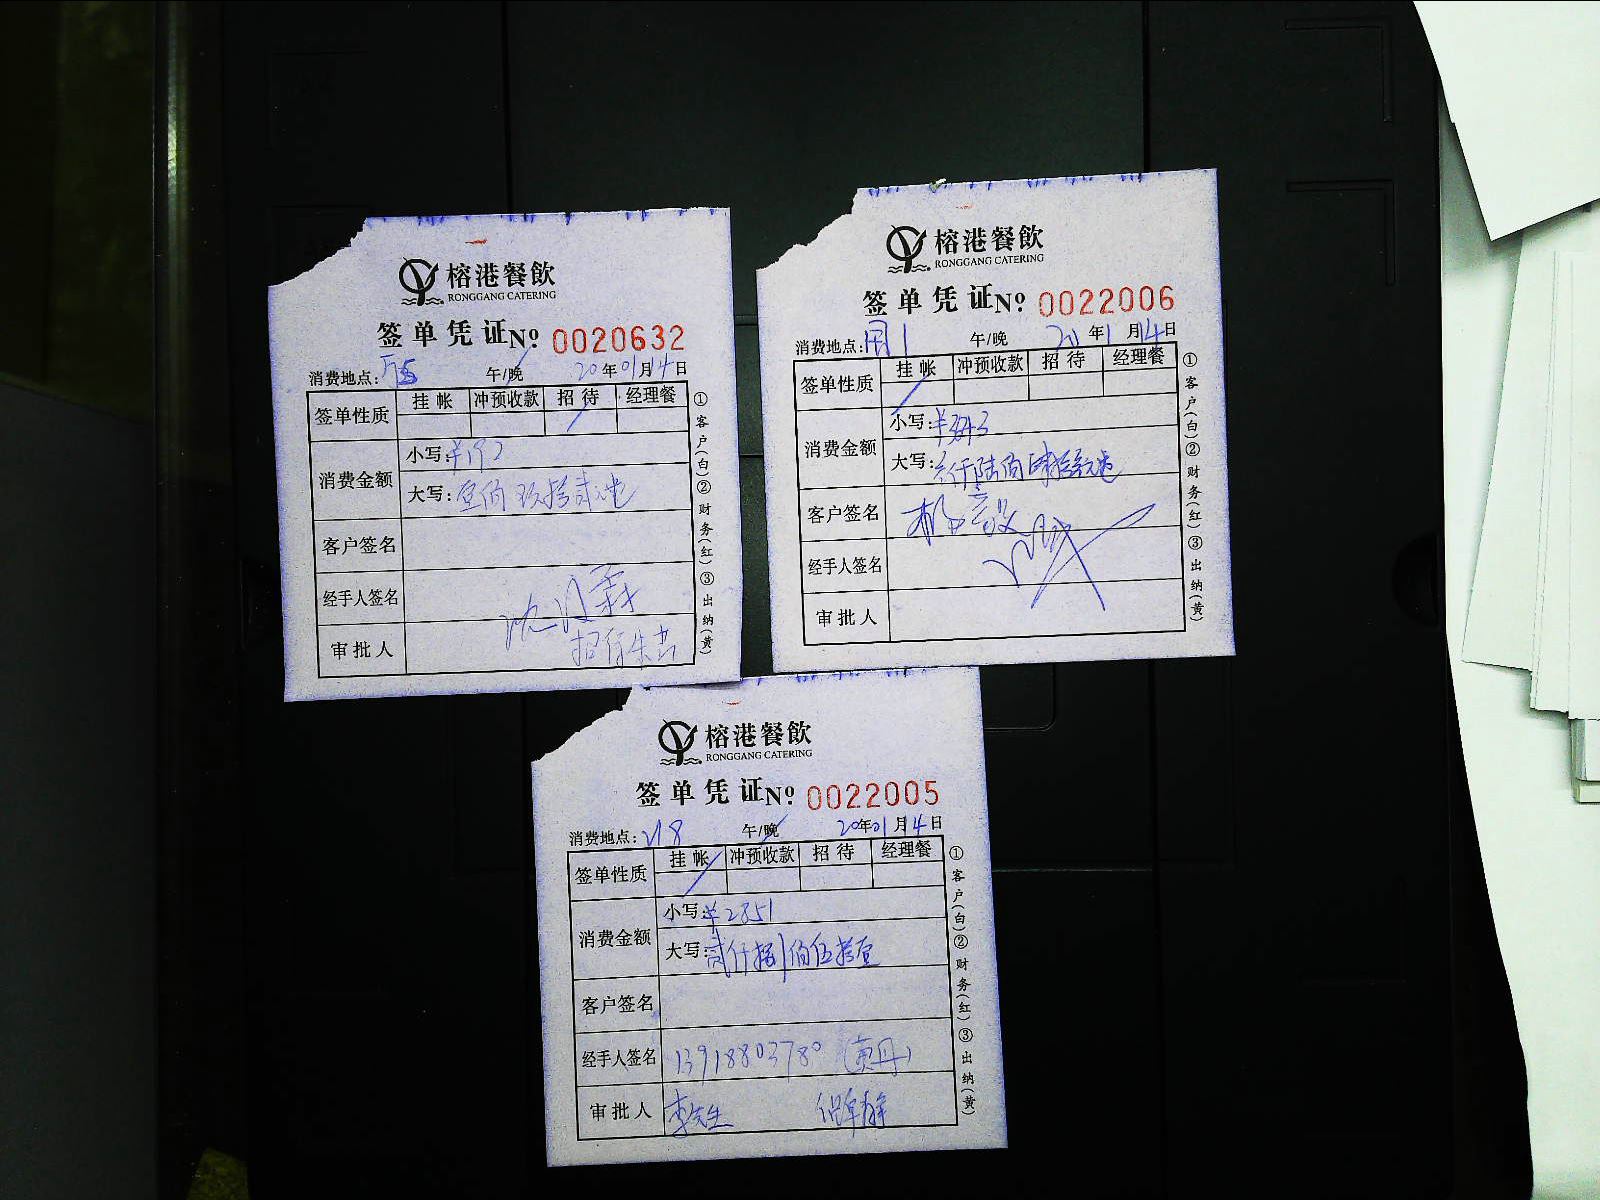 榕港餐飲
RONGGANG CATERING
签单凭证№ 0020632
消费地点: 午/晚 20年01月14日
签单性质 挂帐 冲预收款 招待 经理餐
消费金额 小写:¥192
大写:壹佰玖拾贰元
客户签名
经手人签名
审批人 招待朱总
①客户(白)②财务(红)③出纳(黄)
榕港餐飲
RONGGANG CATERING
签单凭证№ 0022006
消费地点: 午/晚 20年1月14日
签单性质 挂帐 冲预收款 招待 经理餐
消费金额 小写:
大写:
客户签名
经手人签名
审批人
①客户(白)②财务(红)③出纳(黄)
榕港餐飲
RONGGANG CATERING
签单凭证№ 0022005
消费地点:218 午/晚 20年01月14日
签单性质 挂帐 冲预收款 招待 经理餐
消费金额 小写:¥2851
大写:贰仟捌佰伍拾壹
客户签名
经手人签名 13918803780
审批人 李先生
①客户(白)②财务(红)③出纳(黄)